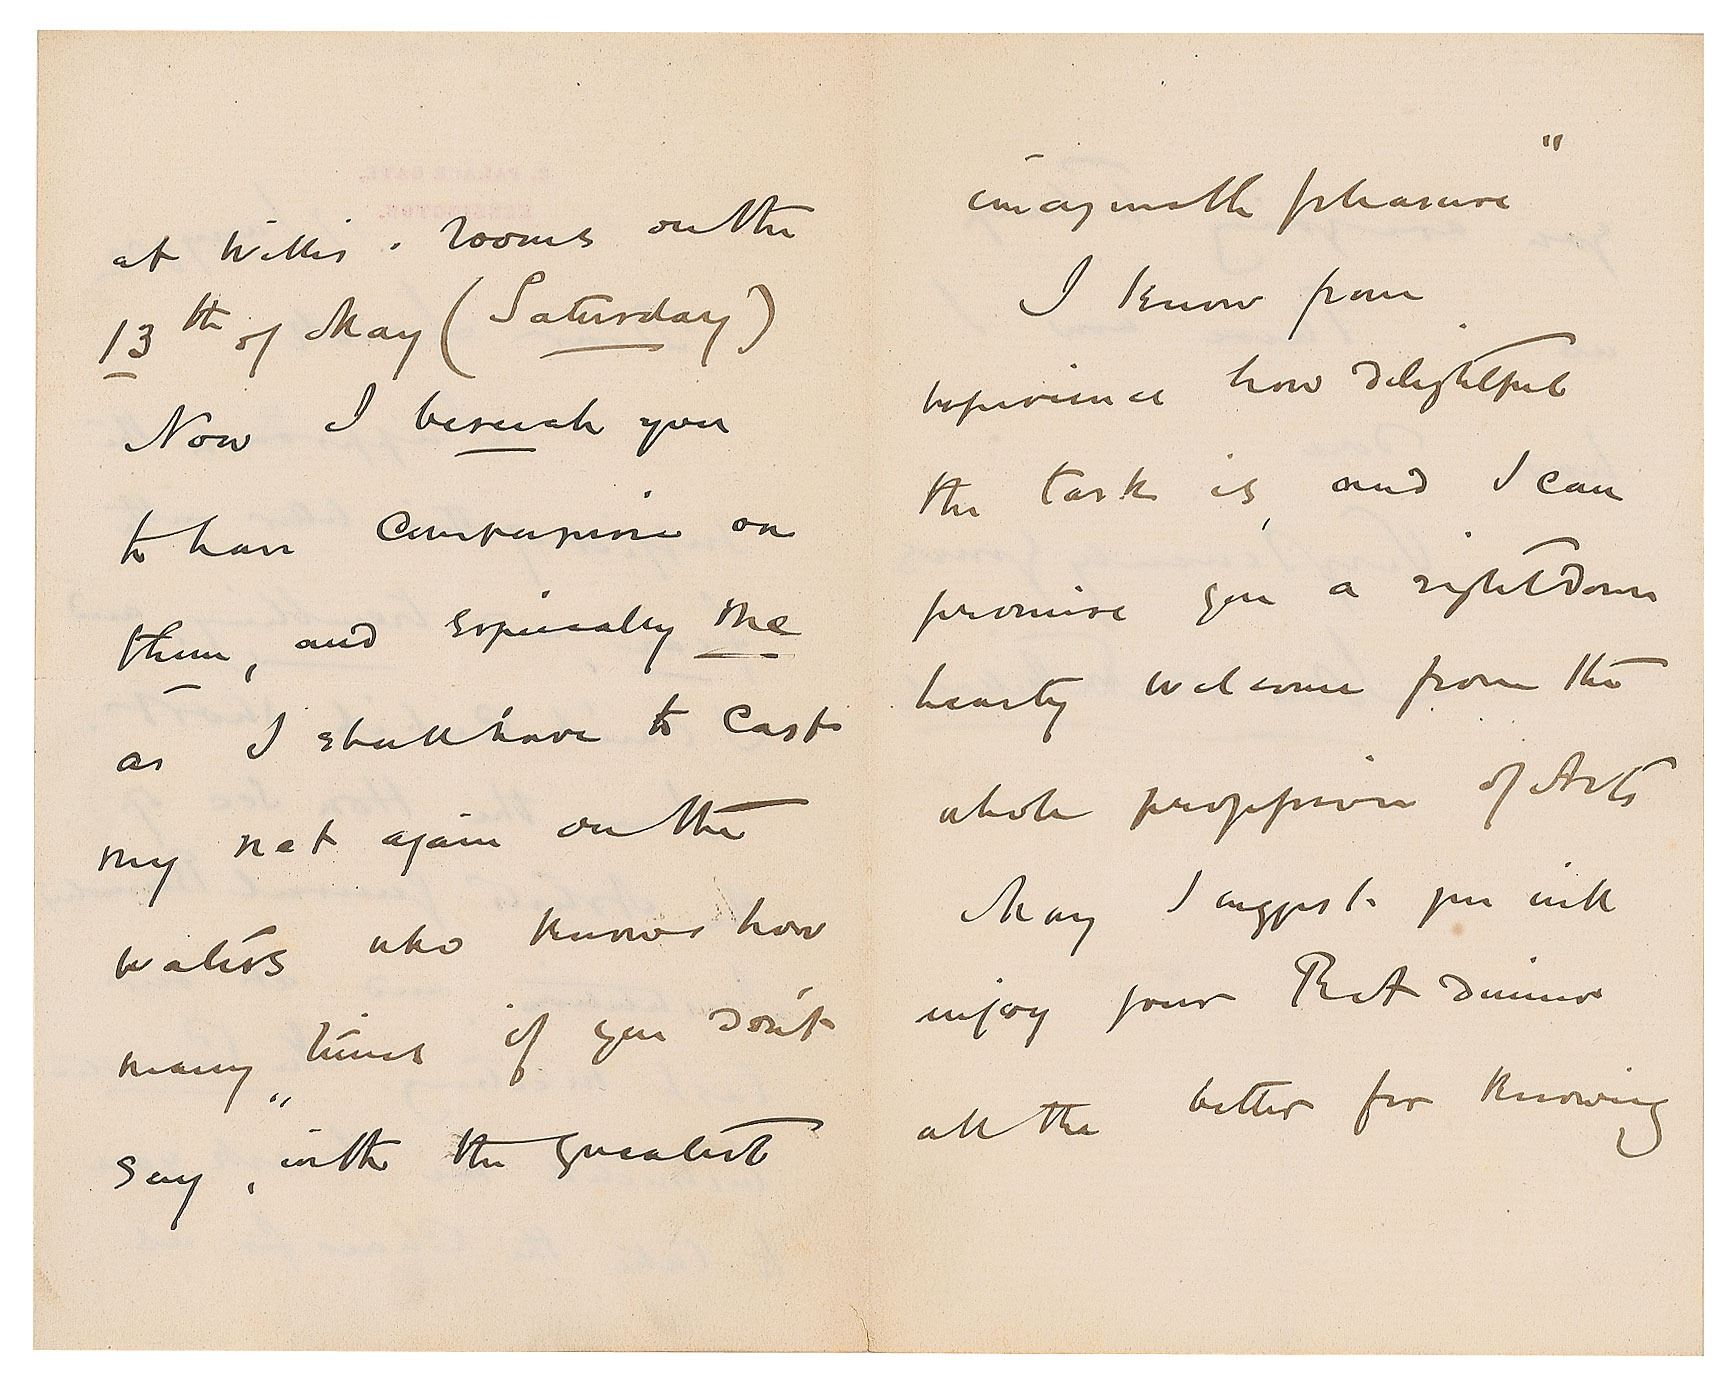 at Willis' rooms on the
13th of May (Saturday)
Now I beseech you
to have compassion on
them, and especially me
as I shall have to cast
my net again on the
waters who knows how
many times if you don't
say, "with the greatest
imaginable pleasure"
I know from
experience how delightful
the task is, and I can
promise you a right down
hearty welcome from the
whole profession of Arts
May I suggest you will
enjoy your RA dinner
all the better for knowing